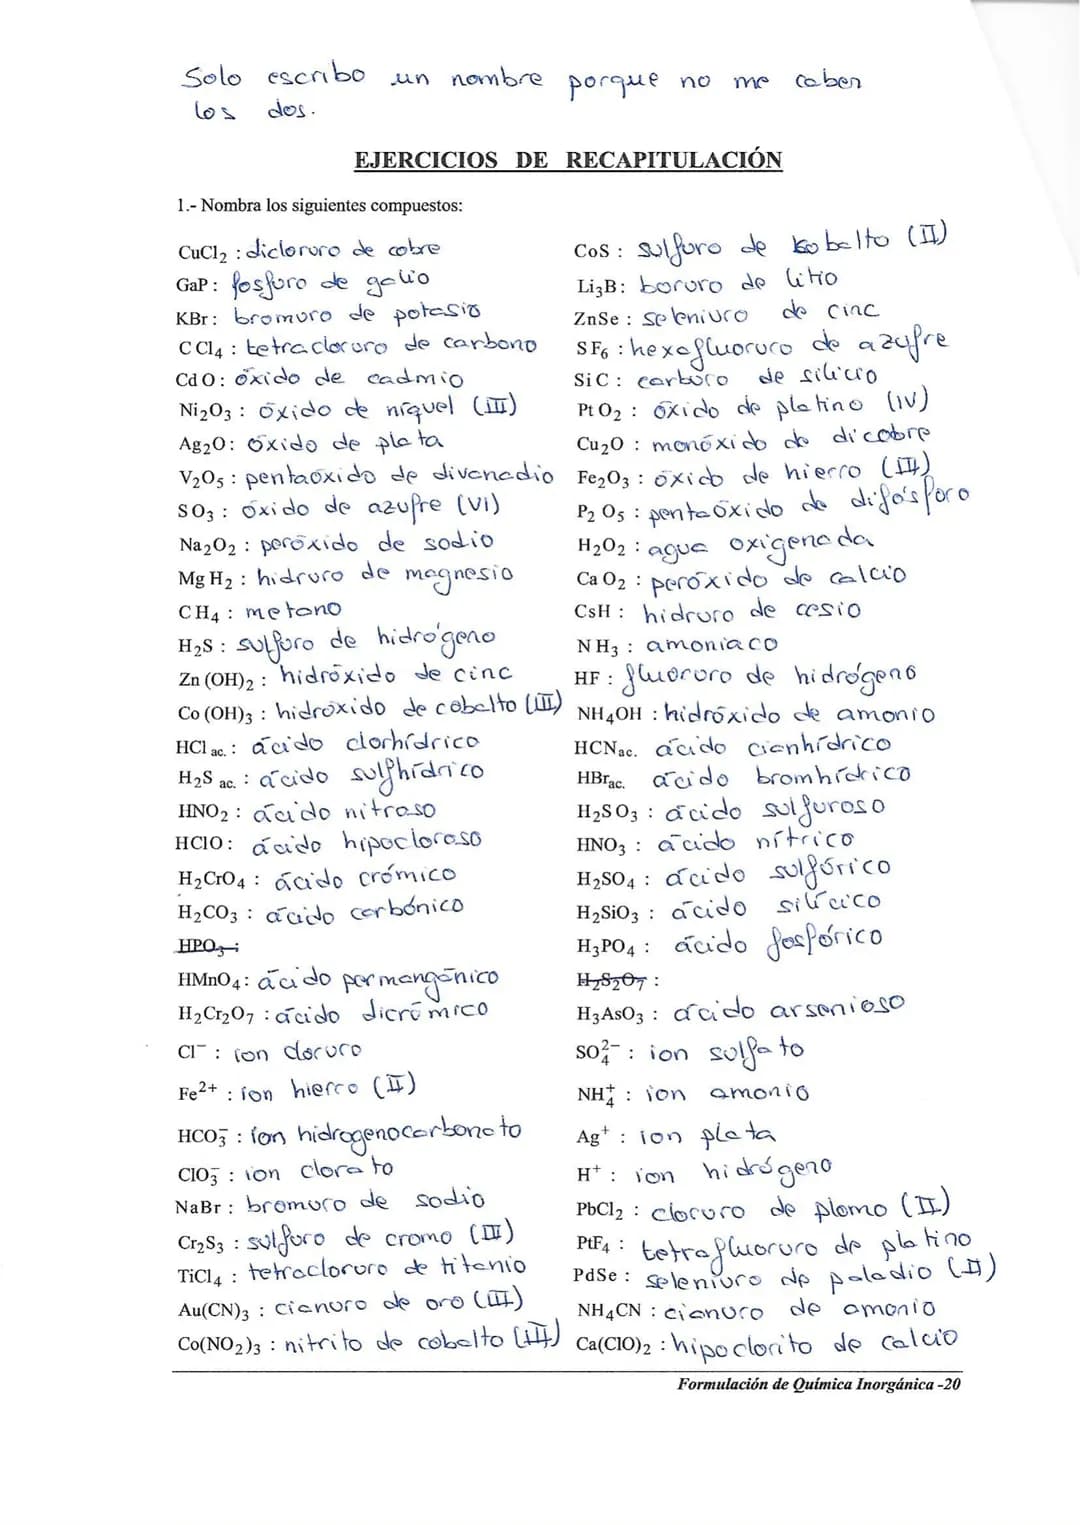 Solo escribo un nombre porque no me caben
los dos.
EJERCICIOS DE RECAPITULACIÓN
1.- Nombra los siguientes compuestos:
CuCl₂ : dicloruro de cobre
GaP : fosfuro de galio
KBr : bromuro de potasio
CCl₄ : tetracloruro de carbono
CdO : óxido de cadmio
Ni₂O₃ : óxido de níquel (III)
Ag₂O: óxido de plata
V₂O₅ : pentaóxido de divanadio
SO₃ : óxido de azufre (VI)
Na₂O₂ : peróxido de sodio
MgH₂ : hidruro de magnesio
CH₄ : metano
H₂S : sulfuro de hidrógeno
Zn(OH)₂ : hidróxido de cinc
Co(OH)₃ : hidróxido de cobalto (III)
HCl ac. : ácido clorhídrico
H₂S ac. : ácido sulfhídrico
HNO₂ : ácido nitroso
HClO : ácido hipocloroso
H₂CrO₄ : ácido crómico
H₂CO₃ : ácido carbónico
HPO₃ :
HMnO₄ : ácido permangánico
H₂Cr₂O₇ : ácido dicrómico
Cl⁻ : ion cloruro
Fe²⁺ : ion hierro (II)
HCO₃⁻ : ion hidrogenocarbonato
ClO₃⁻ : ion clorato
NaBr : bromuro de sodio
Cr₂S₃ : sulfuro de cromo (III)
TiCl₄ : tetracloruro de titanio
Au(CN)₃ : cianuro de oro (III)
Co(NO₂)₃ : nitrito de cobalto (III)
CoS : sulfuro de kobalto (II)
Li₃B : boruro de litio
ZnSe : seleniuro de cinc
SF₆ : hexafluoruro de azufre
SiC : carburo de silicio
PtO₂ : óxido de platino (IV)
Cu₂O : monóxido de dicobre
Fe₂O₃ : óxido de hierro (III)
P₂O₅ : pentaóxido de difósforo
H₂O₂ : agua oxigenada
CaO₂ : peróxido de calcio
CsH : hidruro de cesio
NH₃ : amoniaco
HF : fluoruro de hidrógeno
NH₄OH : hidróxido de amonio
HCNac. ácido cianhídrico
HBrac. ácido bromhídrico
H₂SO₃ : ácido sulfuroso
HNO₃ : ácido nítrico
H₂SO₄ : ácido sulfúrico
H₂SiO₃ : ácido silícico
H₃PO₄ : ácido fosfórico
H₂S₂O₇ :
H₃AsO₃ : ácido arsenioso
SO₄²⁻ : ion sulfato
NH₄⁺ : ion amonio
Ag⁺ : ion plata
H⁺ : ion hidrógeno
PbCl₂ : cloruro de plomo (II)
PtF₄ : tetrafluoruro de platino
PdSe : seleniuro de paladio (II)
NH₄CN : cianuro de amonio
Ca(ClO)₂ : hipoclorito de calcio
Formulación de Química Inorgánica -20